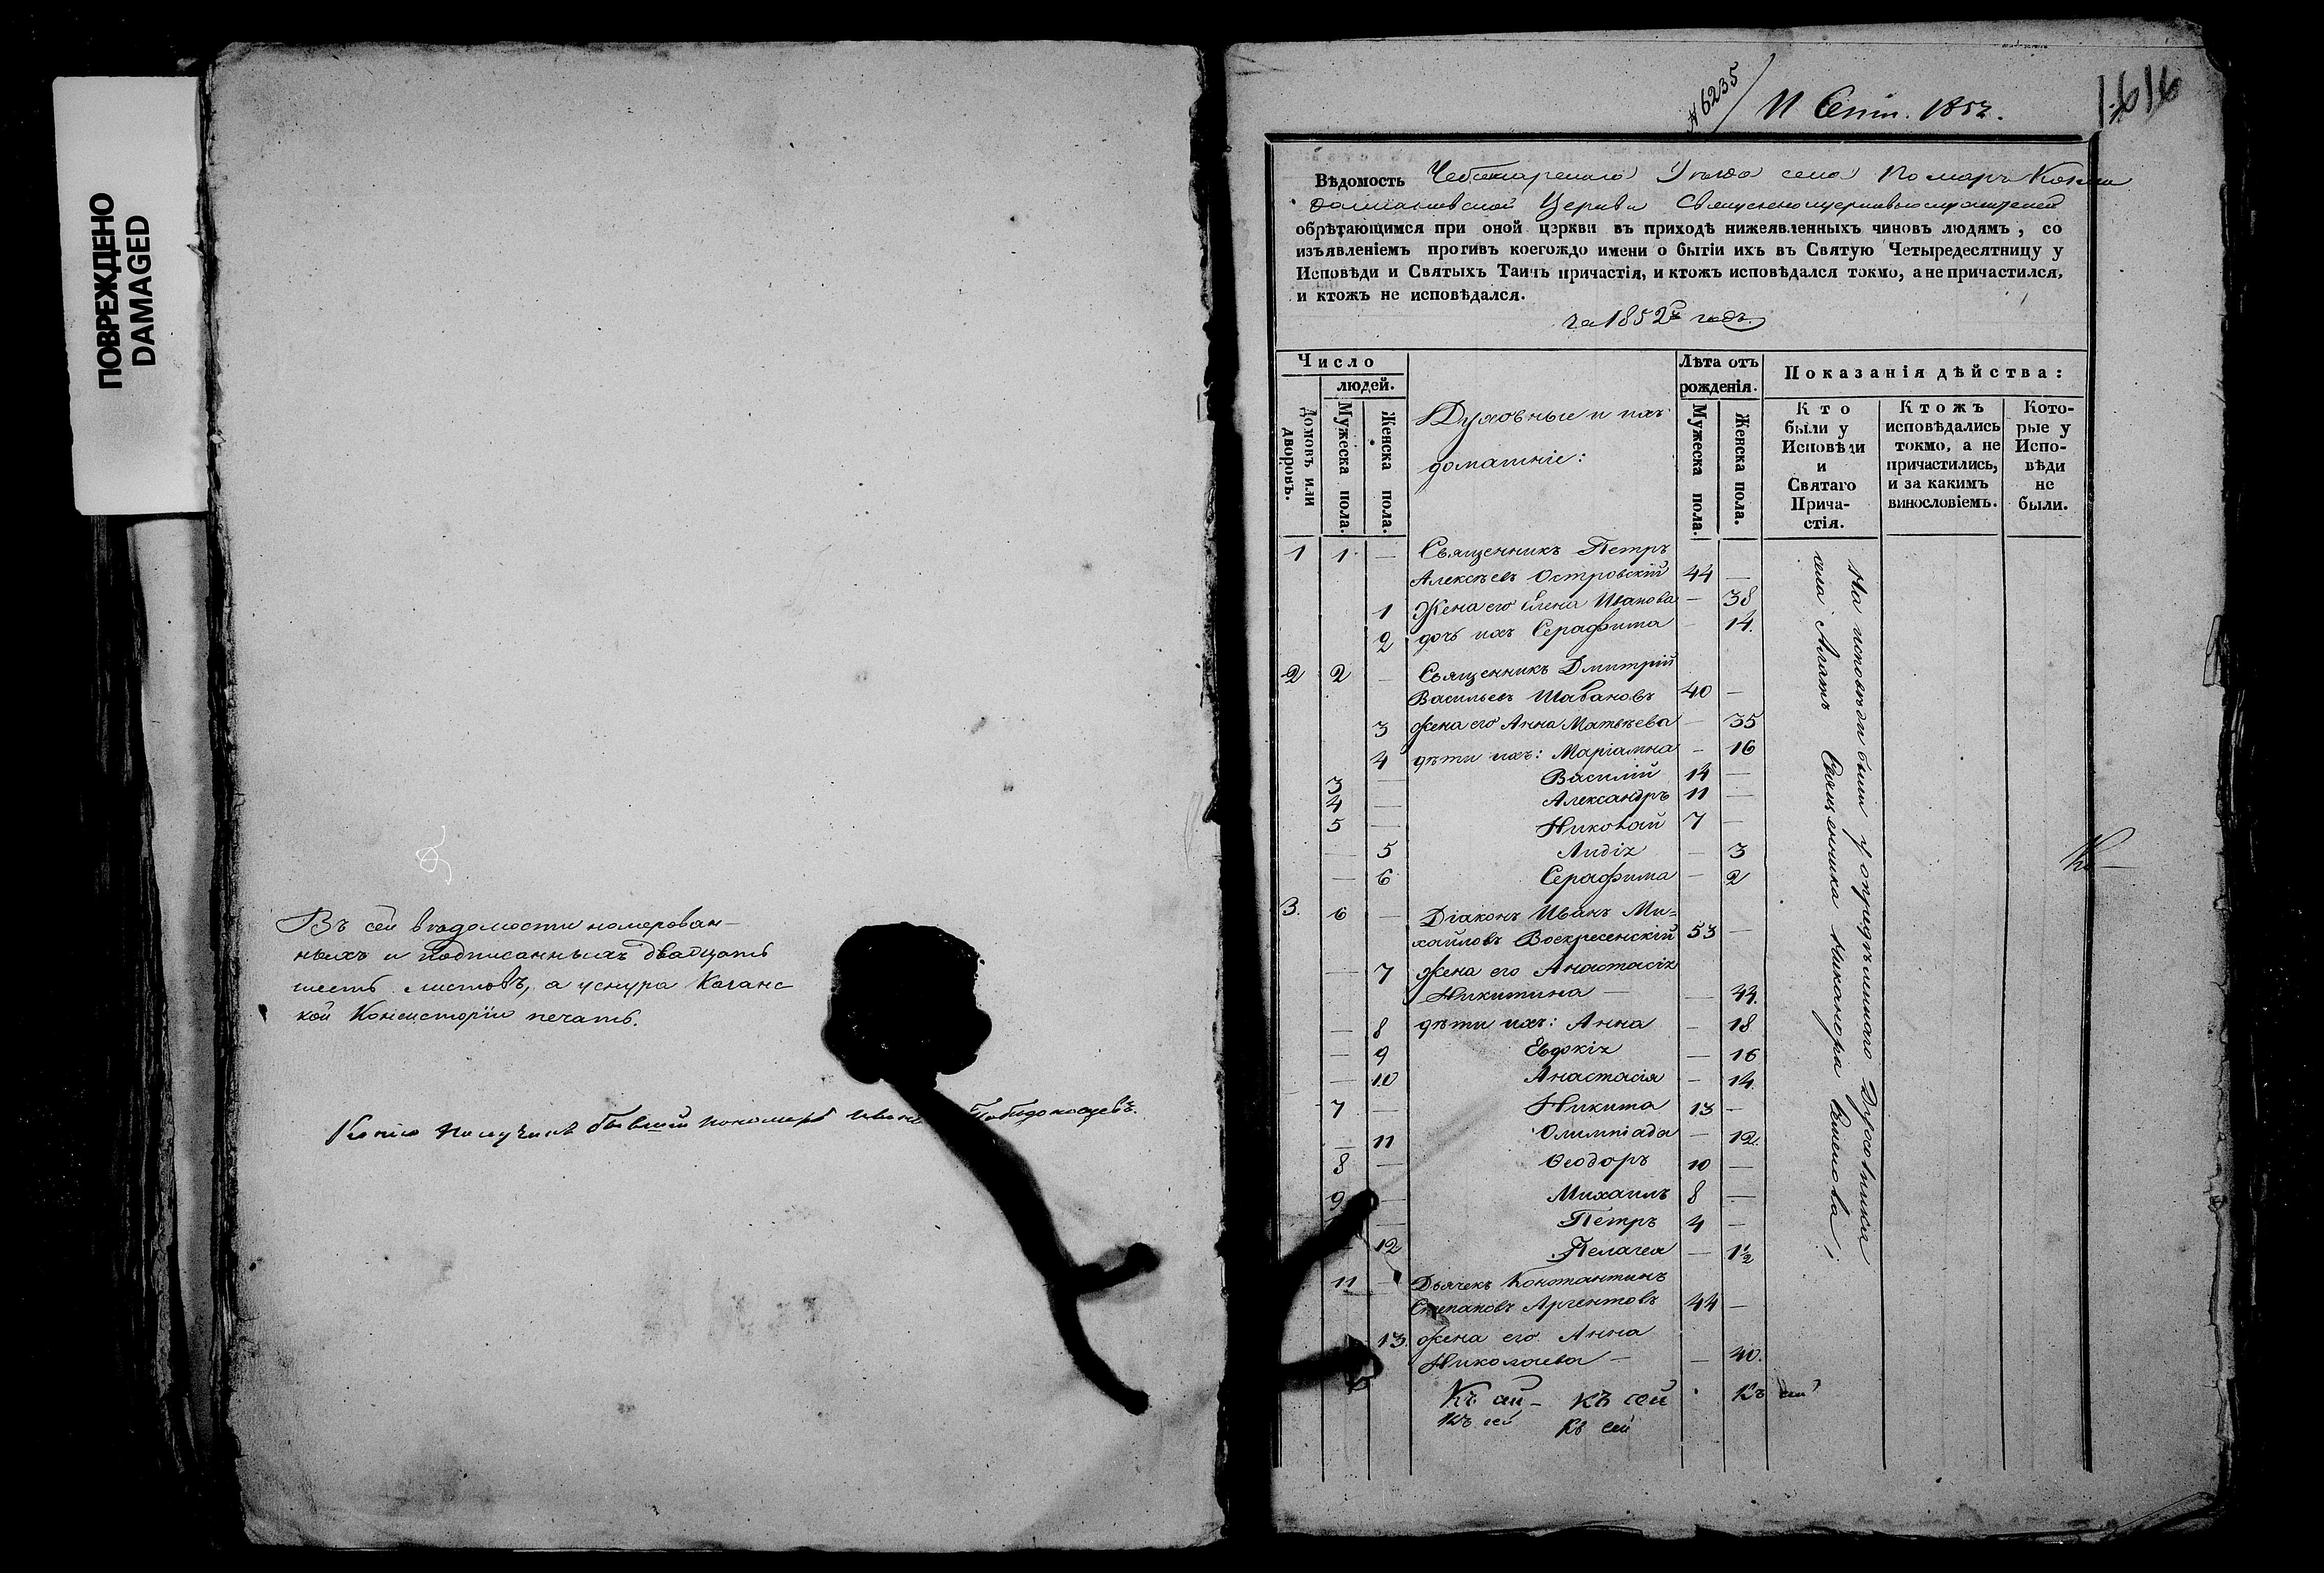 ПОВРЕЖДЕНО
DAMAGED
Въ сей вѣдомости номерован-
ныхъ и подписанныхъ двадцать
шесть листовъ, а у снура Казанс
кой Консисторіи печать.
Копію получилъ бывшій пономарь Иванъ Побѣдоносцевъ.
№ 6235
11 Сент. 1852.
1616
Вѣдомость Чебоксарскаго Уѣзда села Помаръ Козмо
даміановской Церкви Священноцерковнослужителей
обрѣтающимся при оной церкви въ приходѣ нижеявленныхъ чиновъ людямъ, со
изъявленіемъ противъ коегождо имени о бытіи ихъ въ Святую Четыредесятницу у
Исповѣди и Святыхъ Таинъ причастія, и ктожъ исповѣдался токмо, а не причастился,
и ктожъ не исповѣдался.
за 1852й годъ.
Число
людей.
Домовъ или дворовъ.
Мужеска пола.
Женска пола.
Духовные и ихъ
домашніе:
Лѣта отъ
рожденія.
Мужеска пола.
Женска пола.
Показанія дѣйства:
Кто
были у
Исповѣди
и
Святаго
Прича-
стія.
Ктожъ
исповѣдались
токмо, а не
причастились,
и за какимъ
винословіемъ.
Кото-
рые у
Испо-
вѣди
не
были.
1 1 — Священникъ Петръ
Алексѣевъ Островскій 44 —
1 Жена его Елена Иванова — 38
2 дочь ихъ Серафима — 14.
2 2 — Священникъ Дмитрій
Васильевъ Шабановъ 40 —
3 жена его Анна Матвѣева — 35
4 дѣти ихъ: Маріамна — 16
3 — Василій 14 —
4 — Александръ 11 —
5 — Николай 7 —
— 5 Лидія — 3
— 6 Серафима — 2
3. 6 — Діаконъ Иванъ Ми-
хайловъ Воскресенскій 53 —
— 7 жена его Анастасія
Никитина — — 44.
— 8 дѣти ихъ: Анна — 18
— 9 Евдокія — 16
— 10 Анастасія — 14.
7 — Никита 13 —
— 11 Олимпіада — 12.
8 — Ѳеодоръ 10 —
9 — Михаилъ 8 —
— Петръ 4 —
— 12 Пелагея — 1½
11 — Дьячекъ Константинъ
Степановъ Аргентовъ 44 —
13. жена его Анна
Николаева — — 40.
На исповѣди были у опредѣленнаго Духовника
села Священника Никанора
Къ сей
Къ сей Къ сей
Къ сей